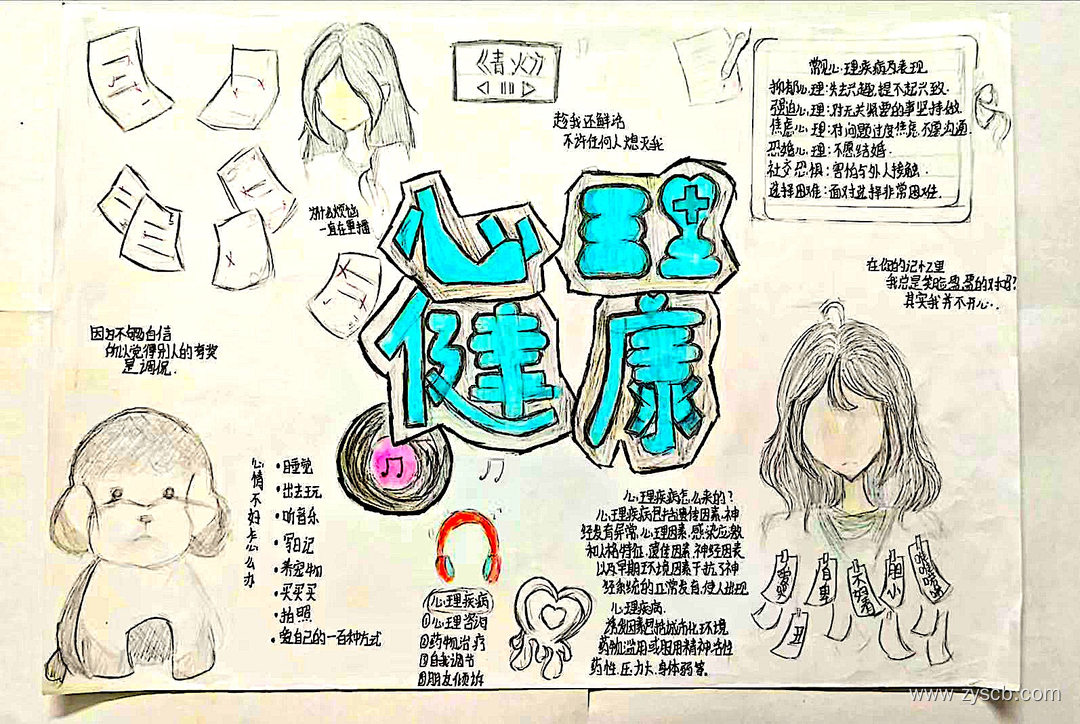 《清火》
趁我还鲜活
不许任何人熄灭我
为什么烦恼
一直在重播
心理
健康
常见心理疾病及表现
抑郁心理:失去兴趣,提不起兴致.
强迫心理:对无关紧要的事坚持做.
焦虑心理:对问题过度焦虑,不愿沟通.
恐婚心理:不愿结婚.
社交恐惧:害怕与外人接触.
选择困难:面对选择非常困难.
在你的记忆里
我总是笑脸盈盈的对吗?
其实我并不开心..
因为不够自信
所以觉得别人的夸奖
是调侃.
心情不好怎么办
·睡觉
·出去玩
·听音乐
·写日记
·养宠物
·买买买
·拍照
·爱自己的一百种方式
心理疾病
①心理咨询
②药物治疗
③自我调节
④朋友倾诉
心理疾病怎么来的?
心理疾病包括遗传因素,神
经发育异常,心理因素,感染应激
和人格特征,遗传因素,神经因素
以及早期环境因素干扰了神
经系统的正常发育,使人出现
心理疾病.
诱发因素包括城市化环境
药物滥用或服用精神活性
药性,压力大,身体弱等。
自卑
不好看
胆小
丑
www.zyscb.com